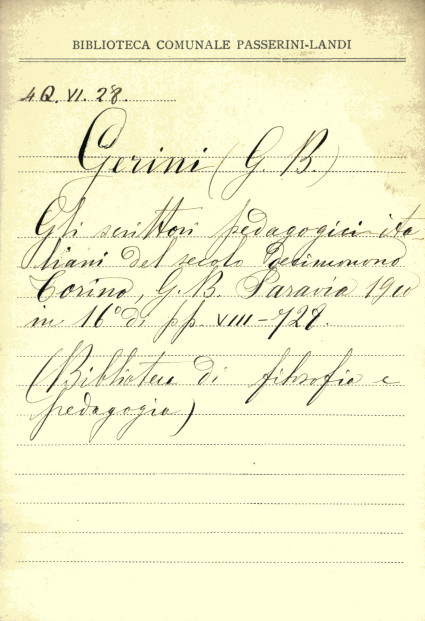 BIBLIOTECA COMUNALE PASSERINI-LANDI
4 Q. VI. 28.
Gerini (G. B.)
Gli scrittori pedagogici ita
liani del secolo Decimonono
Torino, G. B. Paravia 1910
in 16° di pp. VIII-728.
(Biblioteca di filosofia e
pedagogia)